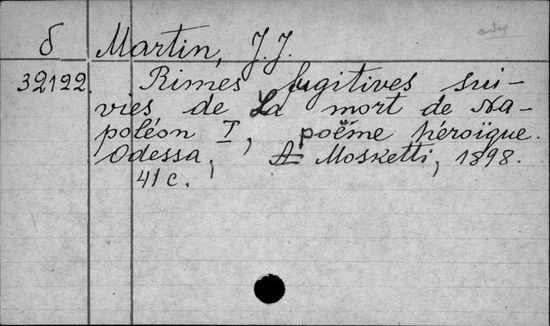 δ Martin, J. J.
32122. Rimes fugitives sui-
vies de La mort de Na-
poléon I, poëme héroïque.
Odessa, A. Mosketti, 1898.
41 c.